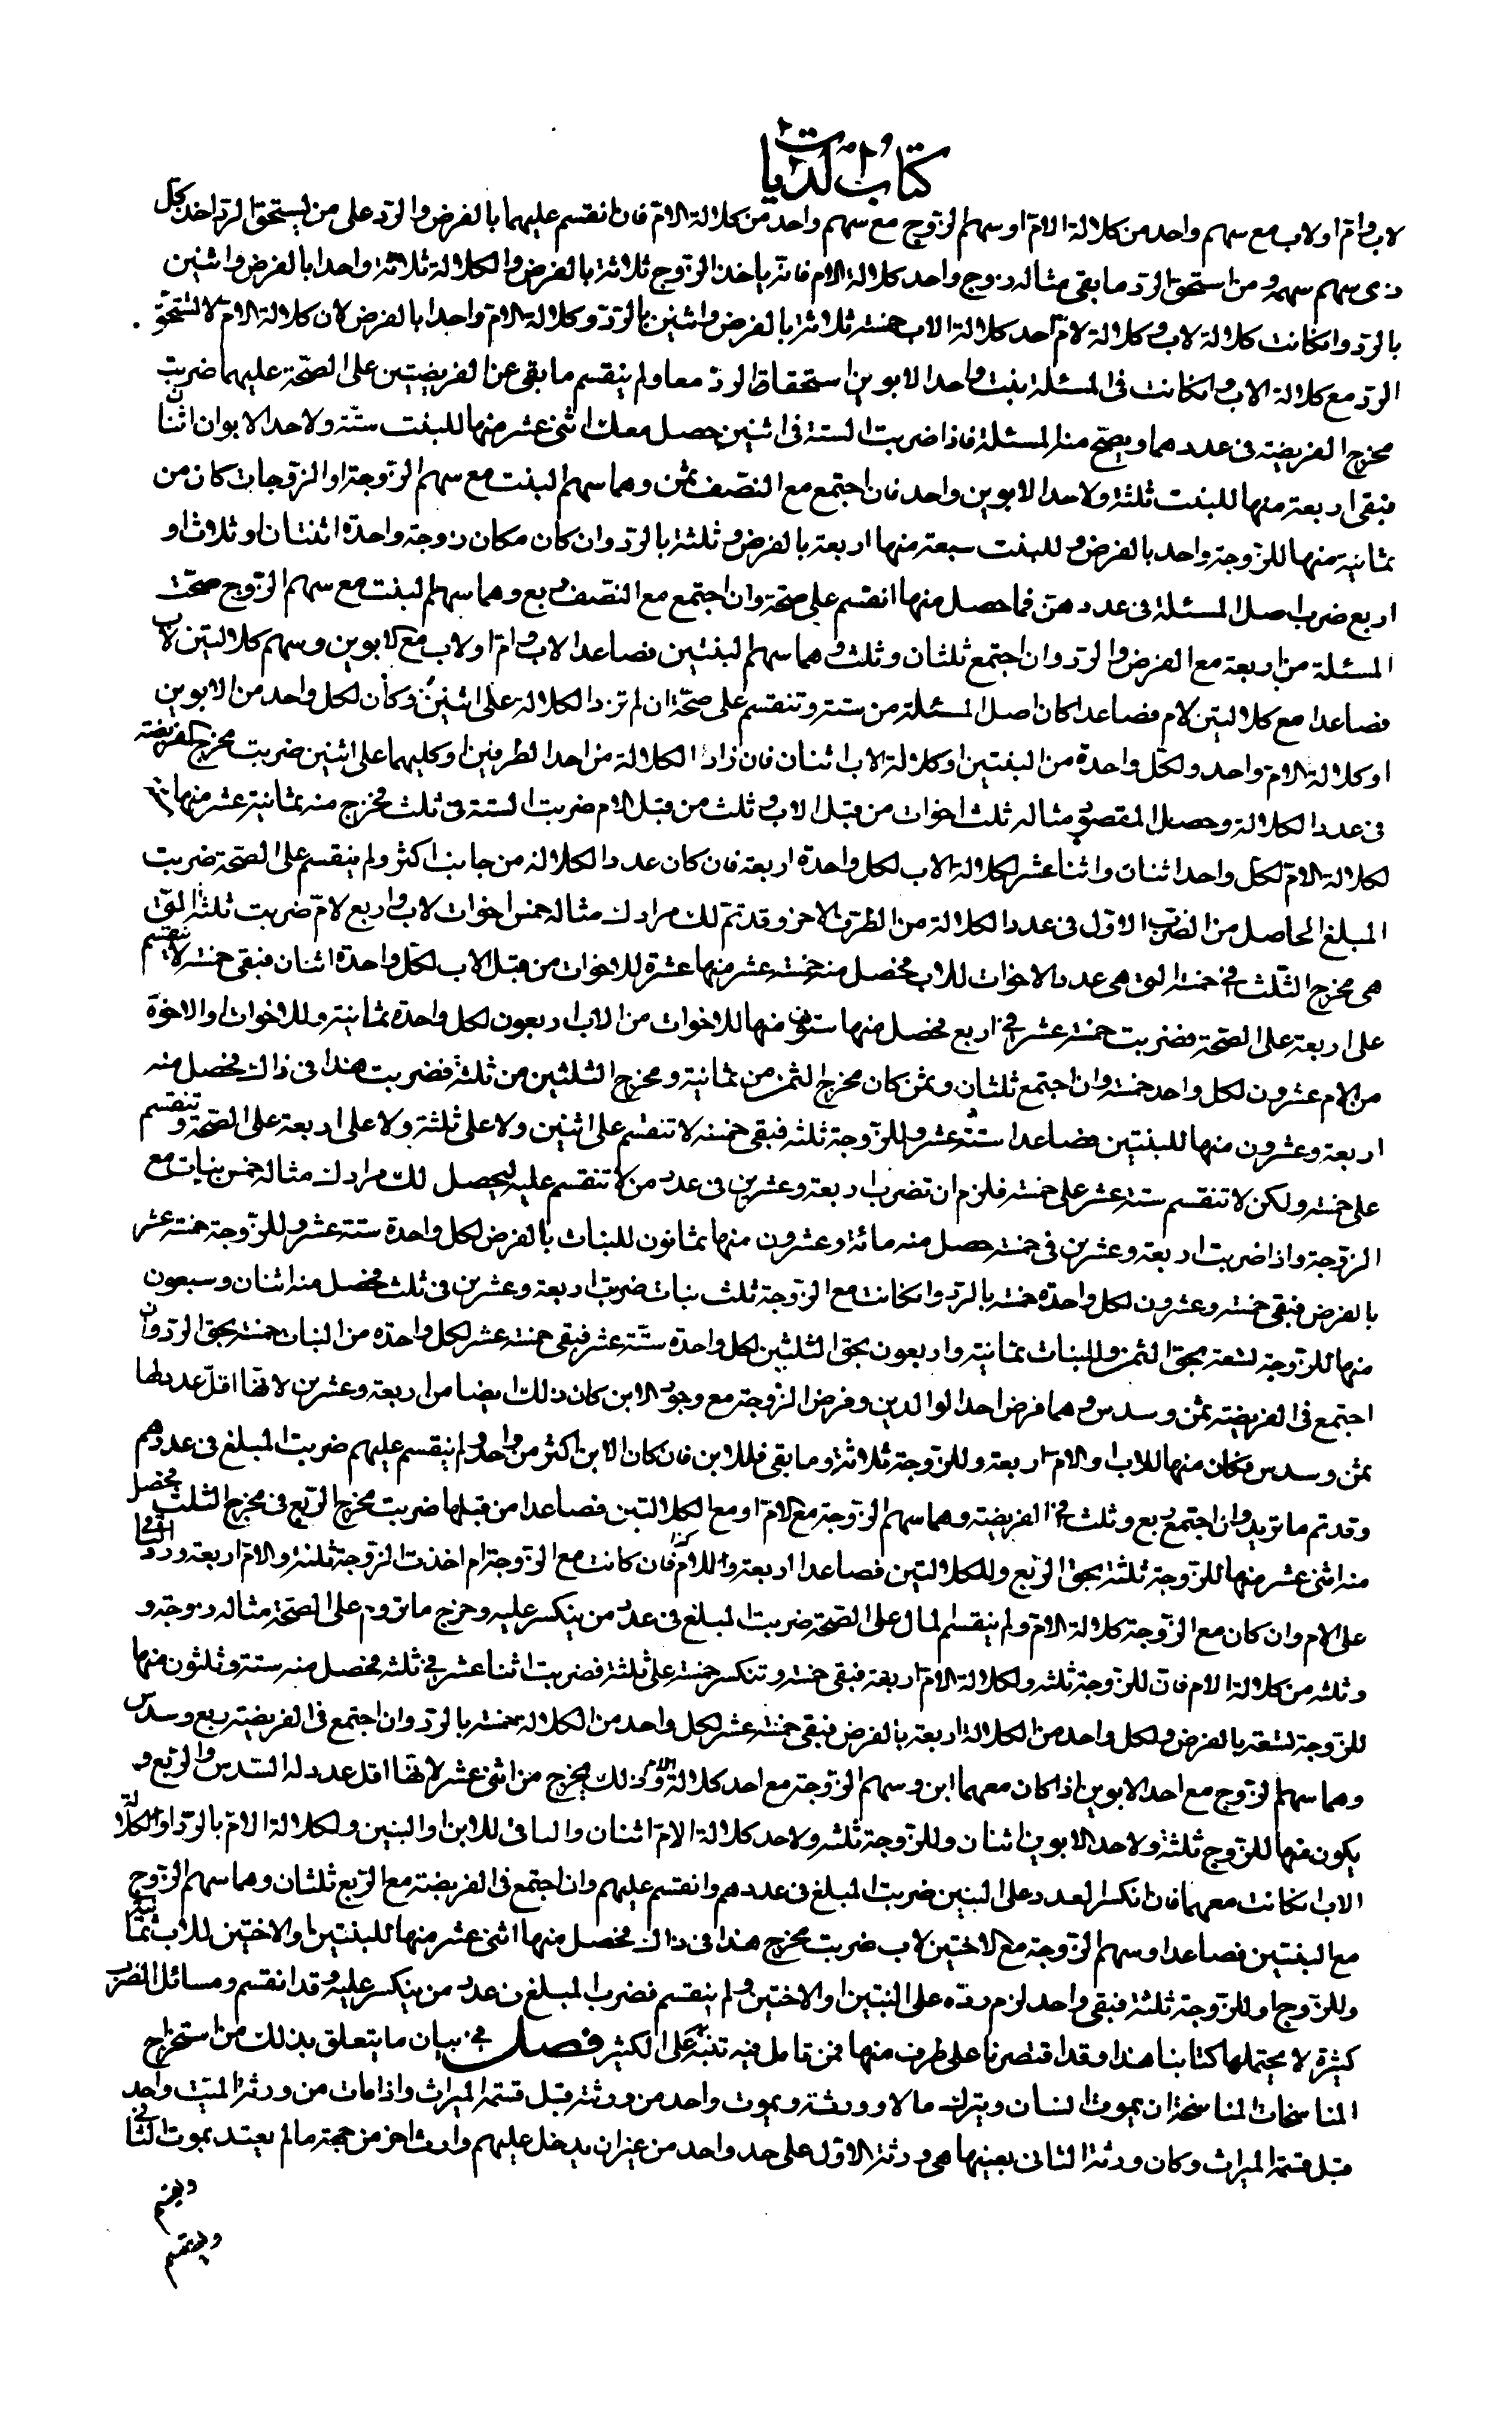 كتاب الديات
لاب وام او لاب مع سهم واحد من كلالة الام او سهم الزوج مع سهم واحد من كلالة الام فان انقسم عليهما بالفرض والرد على من يستحق الرد اخذ كل
ذى سهم سهمه ومن استحق الرد ما بقى مثاله زوج واحد كلالة الام فانه ياخذ الزوج ثلاثة بالفرض والكلالة ثلاثة واحدا بالفرض واثنين
بالرد وان كانت كلالة لاب وكلالة لام احد كلالة الاب خمسة ثلاثة بالفرض واثنين بالرد وكلالة الام واحدا بالفرض لان كلالة الام لا تستحق
الرد مع كلالة الاب وان كانت فى المسئلة بنت واحد الابوين استحقا الرد معا ولم ينقسم ما بقى عن الفريضتين على الصحة عليهما ضربت
مخرج الفريضة فى عددهما ويصح منه المسئلة فاذا ضربت الستة فى اثنين حصل معك اثنى عشر منها للبنت ستة ولاحد الابوان اثنان
فبقى اربعة منها للبنت ثلثة ولاحد الابوين واحد فان اجتمع مع النصف ثمن وهما سهم البنت مع سهم الزوجة او الزوجات كان من
ثمانية منها للزوجة واحد بالفرض وللبنت سبعة منها اربعة بالفرض وثلثة بالرد وان كان مكان زوجة واحدة اثنتان او ثلاث او
اربع ضرب اصل المسئلة فى عددهن فما حصل منها انقسم على صحة وان اجتمع مع النصف ربع وهما سهم البنت مع سهم الزوج صحت
المسئلة من اربعة مع الفرض والرد وان اجتمع ثلثان وثلث وهما سهم البنتين فصاعدا لاب وام او لاب مع الابوين وسهم كلالتين لاب
فصاعدا مع كلالتين لام فصاعدا كان اصل المسئلة من ستة وتنقسم على صحة ان لم تزد الكلالة على اثنين وكان لكل واحد من الابوين
او كلالة الام واحد ولكل واحدة من البنتين او كلالة الاب اثنان فان زاد الكلالة من احد الطرفين او كليهما على اثنين ضربت مخرج الفريضة
فى عدد الكلالة وحصل المقصود مثاله ثلث اخوات من قبل الاب وثلث من قبل الام ضربت الستة فى ثلث فخرج منه ثمانية عشر منها ستة
لكلالة الام لكل واحد اثنان واثنا عشر لكلالة الاب لكل واحدة اربعة فان كان عدد الكلالة من جانب اكثر ولم ينقسم على الصحة ضربت
المبلغ الحاصل من الضرب الاول فى عدد الكلالة من الطرف الاخر وقد تم لك مرادك مثاله خمس اخوات لاب واربع لام ضربت ثلثة التى
هى مخرج الثلث فى خمسة التى هى عدد الاخوات للاب فحصل منه خمسة عشر منها عشرة للاخوات من قبل الاب لكل واحدة اثنان فبقى خمسة لا ينقسم
على اربعة على الصحة فضربت خمسة عشر فى اربع فحصل منها ستون منها للاخوات من الاب اربعون لكل واحدة ثمانية وللاخوات او الاخوة
من الام عشرون لكل واحد خمسة وان اجتمع ثلثان وثمن كان مخرج الثمن من ثمانية ومخرج الثلثين من ثلثة فضربت هذا فى ذاك فحصل منه
اربعة وعشرون منها للبنتين فصاعدا ستة عشر وللزوجة ثلثه فبقى خمسه لا تنقسم على اثنين ولا على ثلثة ولا على اربعة على الصحة وتنقسم
على خمسة ولكن لا تنقسم ستة عشر على خمسة فلزم ان تضرب اربعة وعشرين فى عدد من لا تنقسم عليه ليحصل لك مرادك مثاله خمس بنات مع
الزوجة واذا ضربت اربعة وعشرين فى خمسة حصل منه مائة وعشرون منها ثمانون للبنات بالفرض لكل واحدة ستة عشر وللزوجة خمسة عشر
بالفرض فبقى خمسة وعشرون لكل واحدة خمسة بالرد وان كانت مع الزوجة ثلث بنات ضربت اربعة وعشرين فى ثلث فحصل منه اثنان وسبعون
منها للزوجة تسعة بحق الثمن وللبنات ثمانية واربعون بحق الثلثين لكل واحدة ستة عشر فبقى خمسة عشر لكل واحدة من البنات خمسة بحق الرد وان
اجتمع فى الفريضة ثمن وسدس وهما فرض احد الوالدين وفرض الزوجة مع وجود الابن كان ذلك ايضا من اربعة وعشرين لانها اقل عدد لها
ثمن وسدس فكان منها للاب والام اربعة وللزوجة ثلاثة وما بقى فللابن فان كان الابن اكثر من واحد ولم ينقسم عليهم ضربت المبلغ فى عددهم
وقد تم ما تريد وان اجتمع ربع وثلث فى الفريضة وهما سهم الزوجة مع الام او مع الكلالتين فصاعدا من قبلها ضربت مخرج الربع فى مخرج الثلث فحصل
منه اثنى عشر منها للزوجة ثلثة بحق الربع وللكلالتين فصاعدا اربعة وللام كذا فان كانت مع الزوجة ام اخذت الزوجة ثلثة والام اربعة ورد الباقى
على الام وان كان مع الزوجة كلالة الام ولم ينقسم المال على الصحة ضربت المبلغ فى عدد من ينكسر عليه وخرج ما تروم على الصحة مثاله زوجة و
وثلثه من كلالة الام فان للزوجة ثلثه ولكلالة الام اربعة فبقى خمسة وتنكسر خمسة على ثلثة فضربت اثنا عشر فى ثلثه فحصل منه ستة وثلثون منها
للزوجة تسعة بالفرض ولكل واحد من الكلالة اربعة بالفرض فبقى خمسة عشر لكل واحد من الكلالة خمسة بالرد وان اجتمع فى الفريضة ربع وسدس
وهما سهم الزوج مع احد الابوين اذا كان معهما ابن وسهم الزوجة مع احد كلالة الام ذلك يخرج من اثنى عشر لانها اقل عدد له السدس والربع و
يكون منها للزوج ثلثة ولاحد الابوين اثنان وللزوجة ثلثه ولاحد كلالة الام اثنان والباقى للابن او البنين ولكلالة الام بالرد او الكلالة
الاب ان كانت معهما فان انكسر العدد على البنين ضربت المبلغ فى عددهم وانقسم عليهم وان اجتمع فى الفريضة مع الربع ثلثان وهما سهم الزوج
مع البنتين فصاعدا وسهم الزوجة مع الاختين لاب ضربت مخرج هذا فى ذاك فحصل منها اثنى عشر منها للبنتين او الاختين للاب ثمانية
وللزوج او للزوجة ثلثة فبقى واحد لزم رده على البنتين او الاختين ولم ينقسم فضرب المبلغ فى عدد من ينكسر عليه وقد انقسم ومسائل الضرب
كثيرة لا يحتملها كتابنا هذا وقد اقتصرنا على طرف منها فمن تامل فيه تنبه على الكثير فصل فى بيان ما يتعلق بذلك من استخراج
المناسخات المناسخة ان يموت انسان ويترك مالا وورثة ويموت واحد من ورثته قبل قسمة الميراث واذا مات من ورثة الميت واحد
قبل قسمة الميراث وكان ورثة الثانى بعينها هى ورثة الاول على حد واحد من غير ان يدخل عليهم وارث اخر من جهة ما لم يعتد بموت الثانى
ويقسم